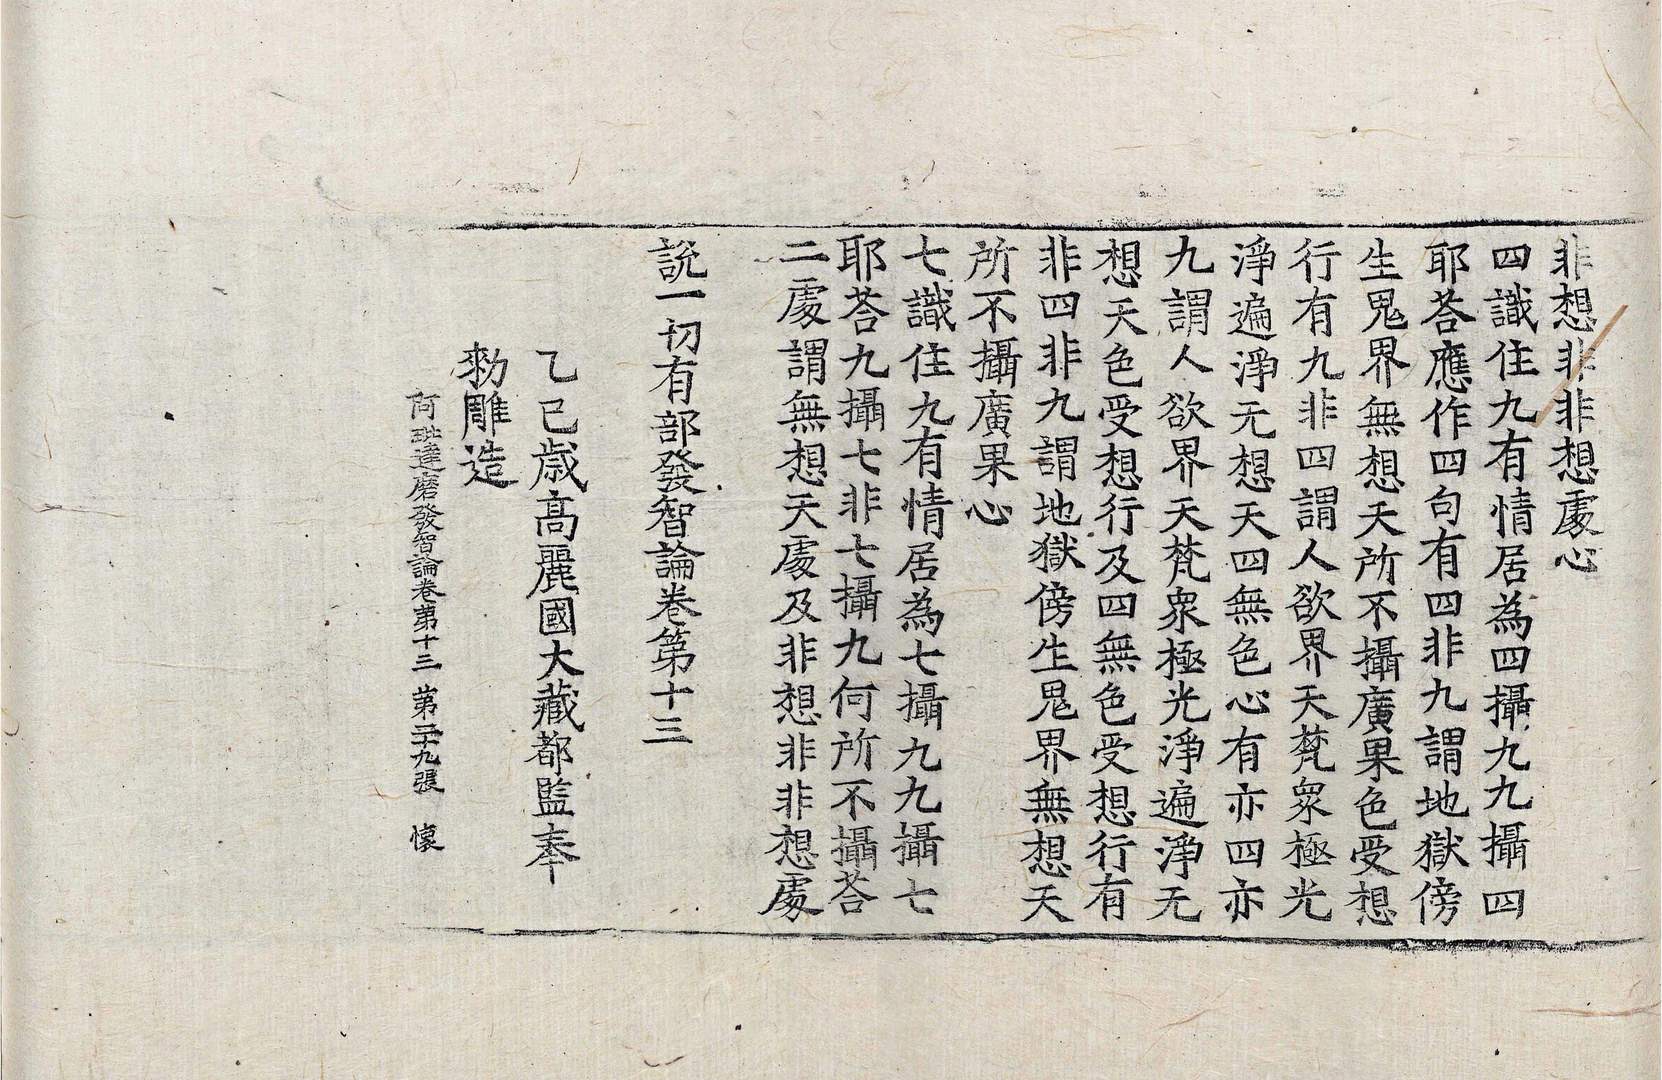 非想非非想處心
四識住九有情居為四攝九九攝四
耶荅應作四句有四非九謂地獄傍
生鬼界無想天所不攝廣果色受想
行有九非四謂人欲界天梵衆極光
淨遍淨无想天四無色心有亦四亦
九謂人欲界天梵衆極光淨遍淨无
想天色受想行及四無色受想行有
非四非九謂地獄傍生鬼界無想天
所不攝廣果心
七識住九有情居為七攝九九攝七
耶荅九攝七非七攝九何所不攝荅
二處謂無想天處及非想非非想處
說一切有部發智論卷第十三
乙巳歲高麗國大藏都監奉
勑雕造
阿毗達磨發智論卷第十三 第二十九張 懷